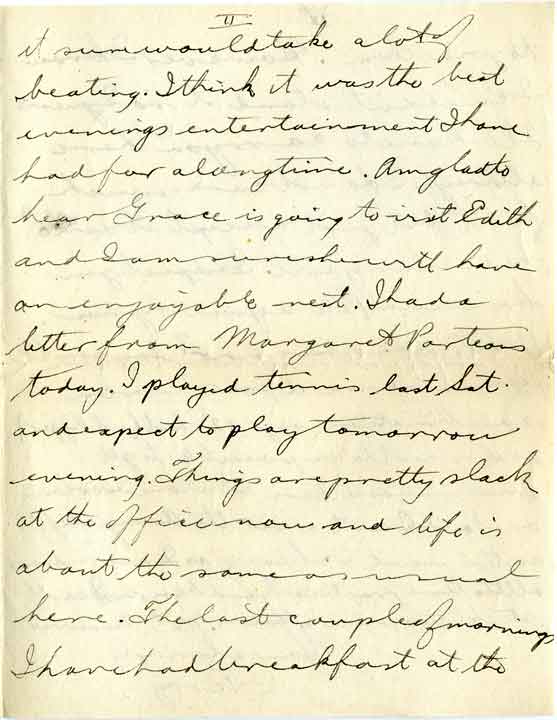 II
it sure would take a lot of
beating. I think it was the best
evenings entertainment I have
had for a long time. Am glad to
hear Grace is going to visit Edith
and I am sure she will have
an enjoyable rest. I had a
letter from Margaret Porteous
today. I played tennis last Sat.
and expect to play tomorrow
evening. Things are pretty slack
at the office now and life is
about the same as usual
here. The last couple of mornings
I have had breakfast at the